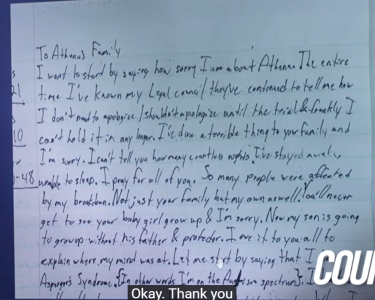 To Athena's Family
I want to start by saying how sorry I am about Athena. The entire
time I've known my legal council they've continued to tell me how
I don't need to apologize/shouldn't apologize until the trial & frankly I
can't hold it in any longer. I've done a terrible thing to your family and
I'm sorry. I can't tell you how many countless nights I've stayed awake,
unable to sleep. I pray for all of you. So many people were affected
by my breakdown. Not just your family but my own aswell. You'll never
get to see your baby girl grow up & I'm sorry. Now my son is going
to grow up without his father & protector. I owe it to you all to
explain where my mind was at. Let me start by saying that I
Aspergers Syndrome. [In other words I'm on the Autism spectrum].
21
10
-48
COU
Okay. Thank you